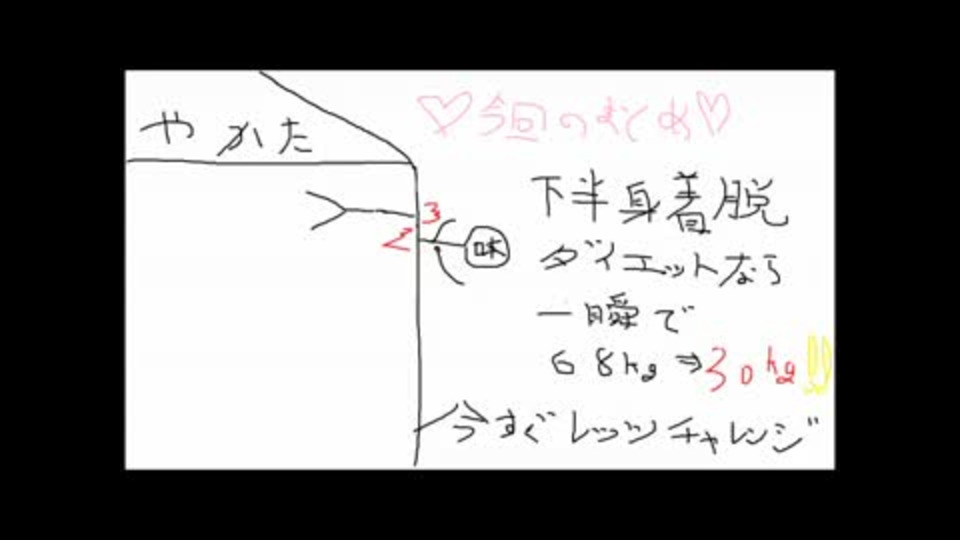 やかた
♡今回のまとめ♡
下半身着脱
ダイエットなら
一瞬で
68kg⇒30kg!!
今すぐレッツチャレンジ
3
味